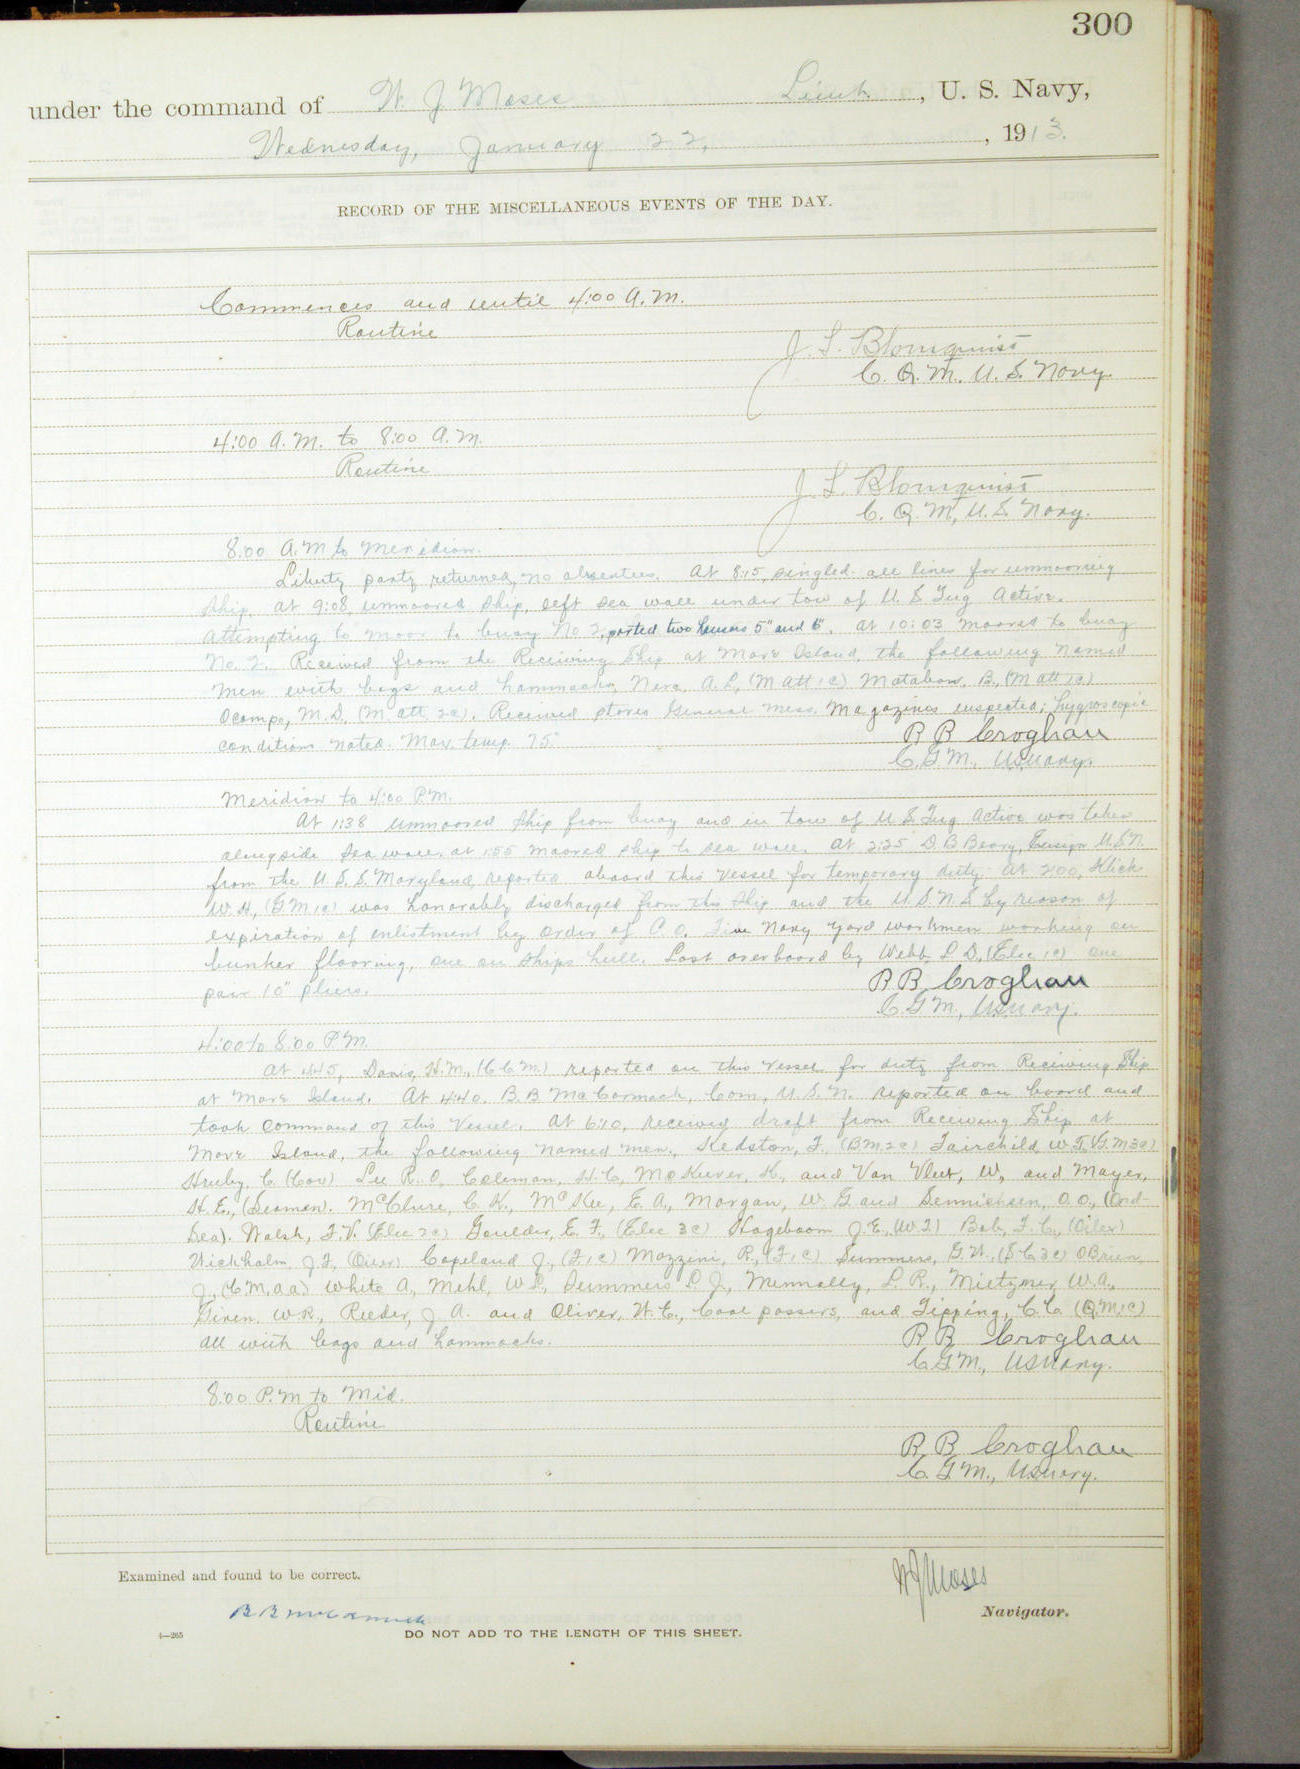 300
under the command of W J Moses Lieut, U. S. Navy,
Wednesday, January 22, 1913.
RECORD OF THE MISCELLANEOUS EVENTS OF THE DAY.
Commences and until 4:00 A.M.
Routine
J. L. Blomquist
C. Q. M. U. S. Navy.
4:00 A.M. to 8:00 A.M.
Routine
J L. Blomquist
C. Q. M, U. S. Navy.
8:00 A.M to Meridian.
Liberty party returned, no absentees. At 8:15, singled all lines for unmooring
ship. at 9:08, unmoored ship, left sea wall under tow of U. S Tug Active.
Attempting to moor to buoy No 2, parted two hausers 5" and 6". At 10:03 moored to buoy
No. 2. Received from the Receiving Ship at Mare Island, the following named
men with bags and hammocks, Nera, A. L, (M att 1c) Matabon, B., (M att 1c)
Ocampo, M. D. (M. att 2c). Received stores General Mess. Magazines inspected; hygroscopic
condition noted. Max temp. 75°
R B Croghan
C. G M., USNavy.
Meridian to 4:00 P.M.
At 1:38 unmoored ship from buoy and in tow of U S Tug Active was taken
alongside sea wall, at 1:55 moored ship to sea wall. At 2:25 D. B Beary, Ensign U.S.N.
from the U. S. S. Maryland, reported aboard this vessel for temporary duty. At 2:00, Klick
W. H, (G M 1c) was honorably discharged from this ship and the U. S. N. S by reason of
expiration of enlistment by order of C. O. Five Navy Yard workmen working on
bunker flooring, one on ships hull. Lost overboard by Webb L D, (Elec 1c) one
pair 10" pliers.
R B Croghan
C. G M., USNavy.
4:00 to 8:00 P.M.
At 4:45, Davis, H. M., (C C M.) reported on this vessel for duty from Receiving Ship
at Mare Island. At 4:40. B. B McCormack, Com, U. S. N. reported on board and
took command of this vessel. At 6:10, received draft from Receiving Ship at
Mare Island, the following named men. Hedston, F. (B M 2c) Fairchild, W. T. (G. M 3c)
Hruby, C (Cox) Lee R. O, Coleman, H. C, McKuver, H., and Van Vleet, W, and Mayer,
H. E., (Seaman). McClure, C. K., McKee, E. A, Morgan, W. G and Sennichsen, O. O., (Ord-
Sea). Walsh, F. V. (Elec 2c) Goulder, E. F., (Elec 3c) Hageboom J. E., (W T) Bob, F. C., (Oiler)
Wickholm J. F, (Oiler) Copeland J, (F 1c) Mazzini, R., (F 1c) Summers, G. W., (S C 3c) O'Brien,
J, (C. M. a a) White A, Mehl, W L, Summers L. J., Mennally, L R., Mietzner W. A.,
Given, W. R., Reeder, J A. and Oliver, W. C., Coal passers, and Tipping, C. C. (Q. M. 1c)
all with bags and hammocks.
R B Croghan
C. G M., USNavy.
8:00 P. M to Mid.
Routine
R B Croghan
C. G M., USNavy.
Examined and found to be correct.
B B McCormick
W J Moses
Navigator.
4—265
DO NOT ADD TO THE LENGTH OF THIS SHEET.